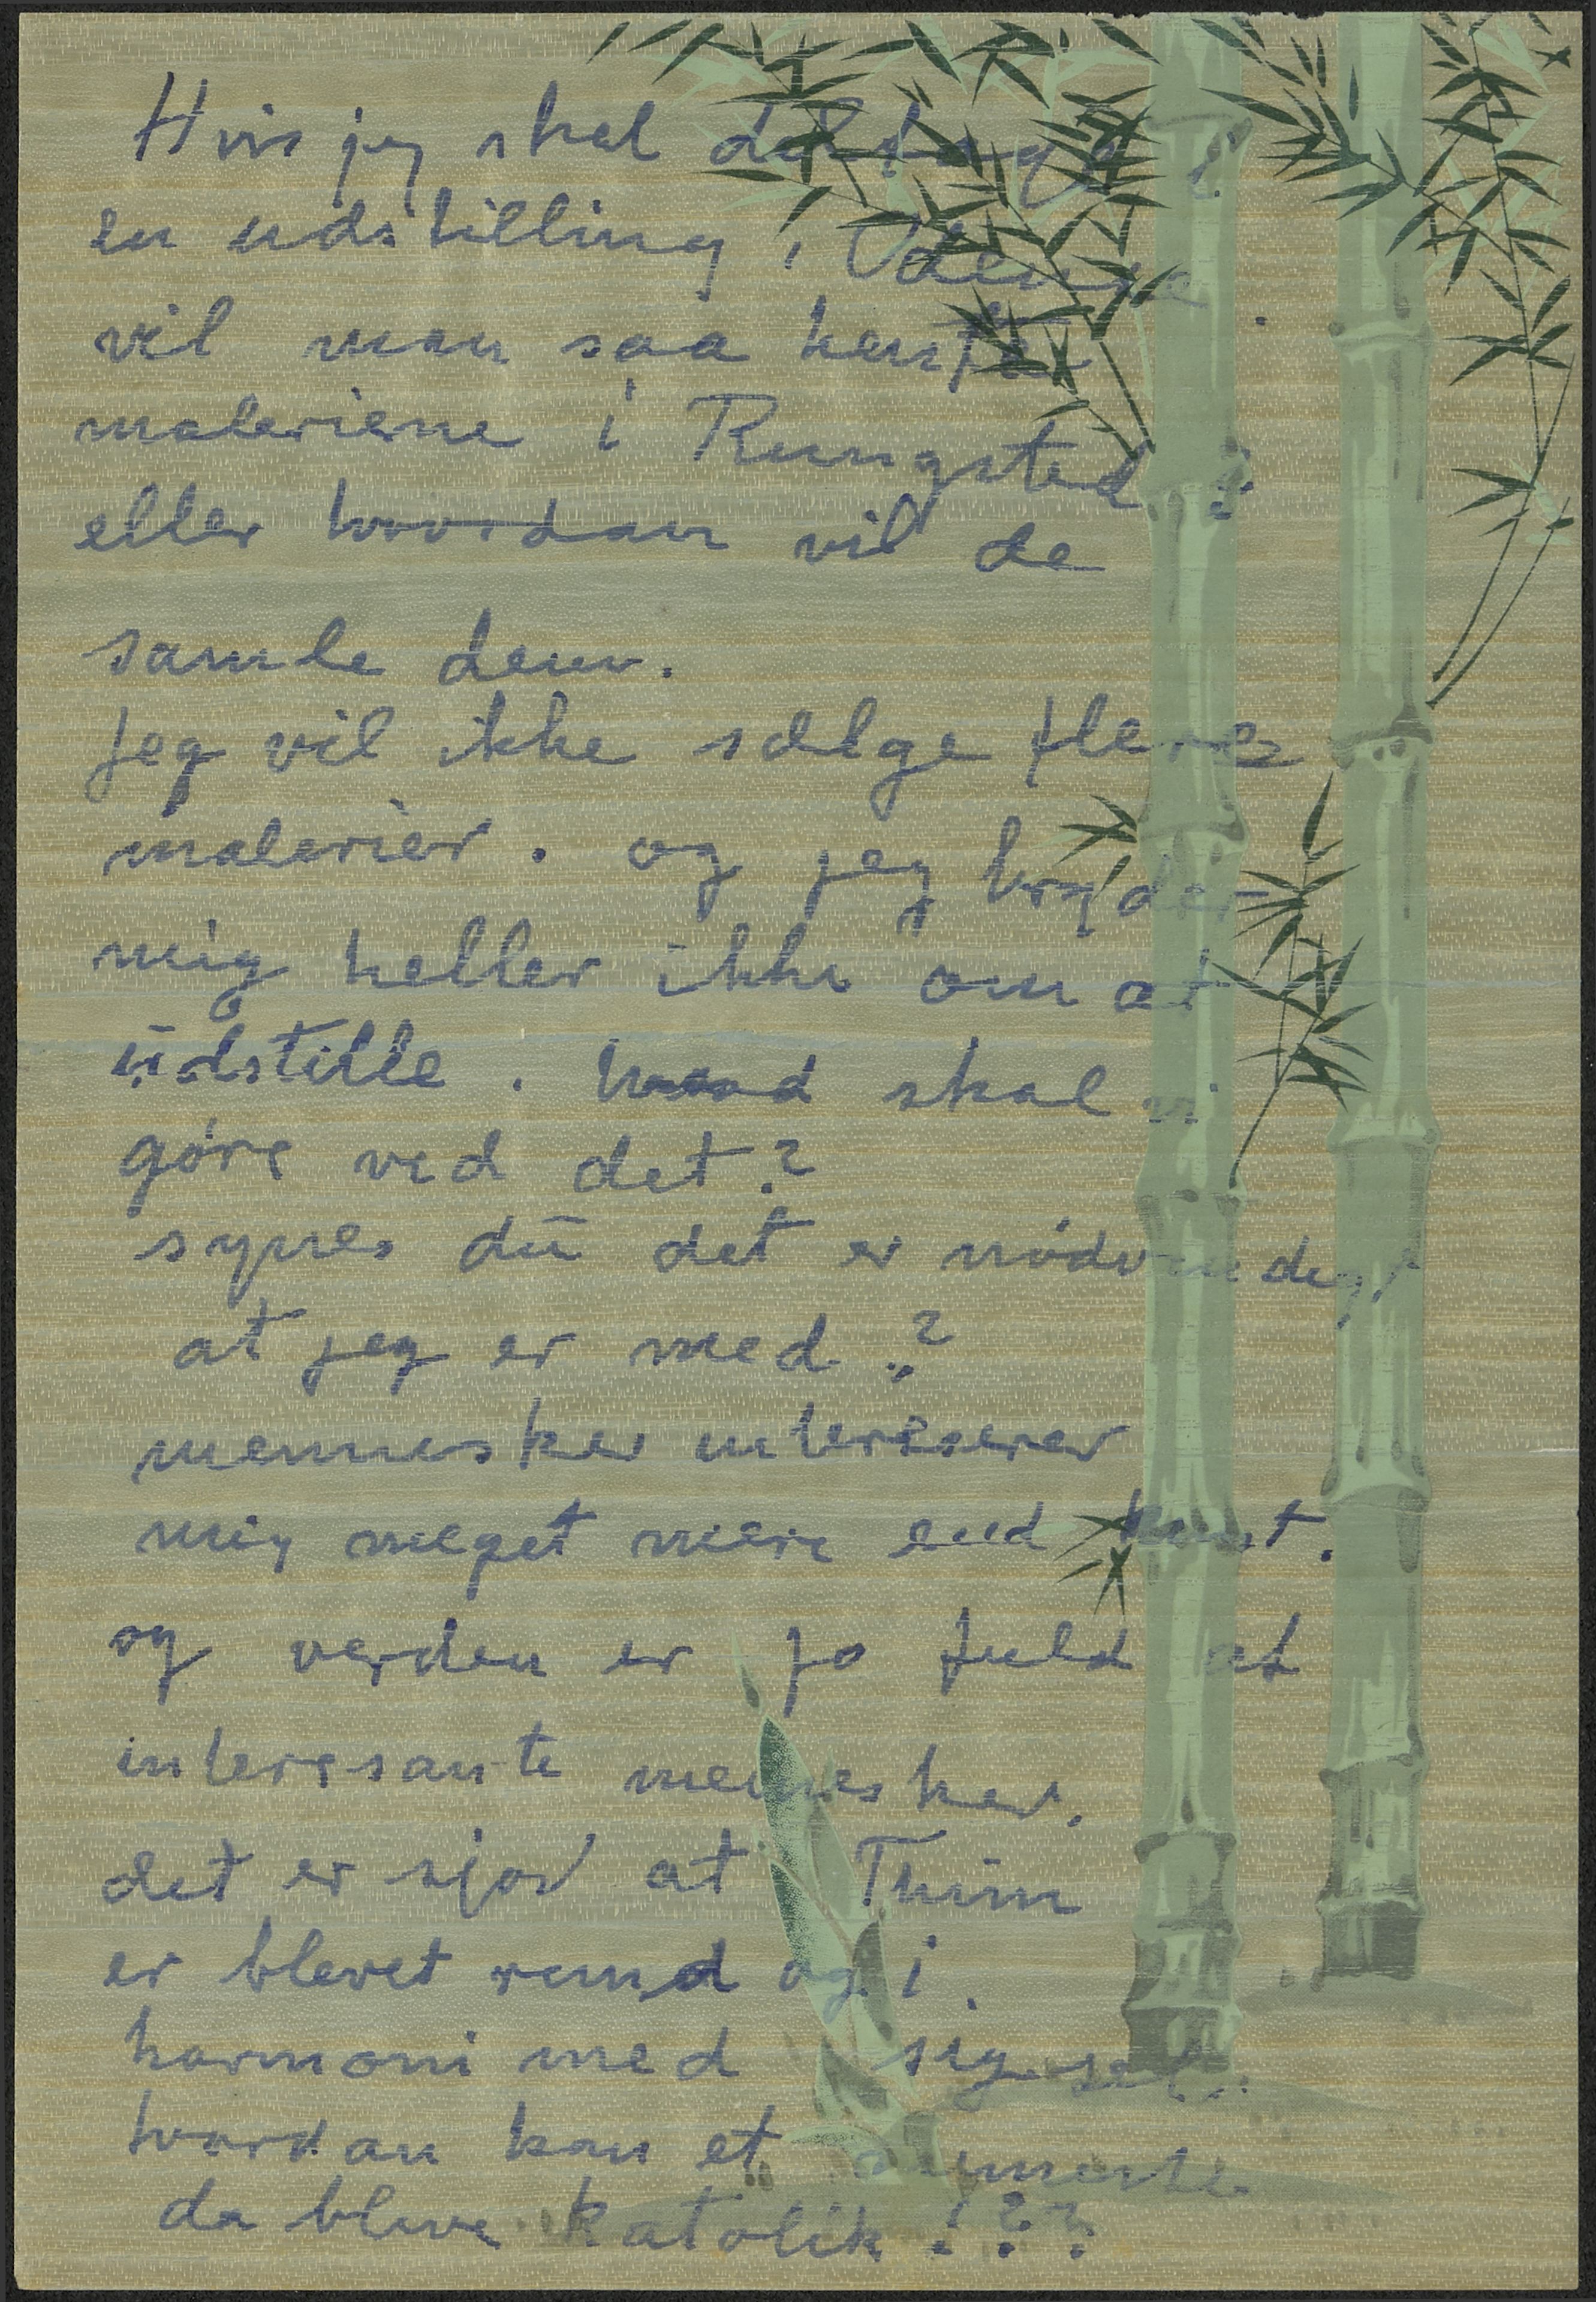 Hvis jeg skal deltage i
en udstilling i Odense
vil man saa hente
malerierne i Rungsted?
eller hvordan vil de
samle dem.
jeg vil ikke sælge flere
malerier. og jeg bryder
mig heller ikke om at
udstille. hvad skal vi
göre ved det?
synes du det er nödvendigt
at jeg er med?
mennesker interesserer
mig meget mere end kunst.
og verden er jo fuld af
interesante mennesker.
det er sjov at
er blevet rund og i
harmoni med sig selv.
hvordan kan et
da blive katolik!??